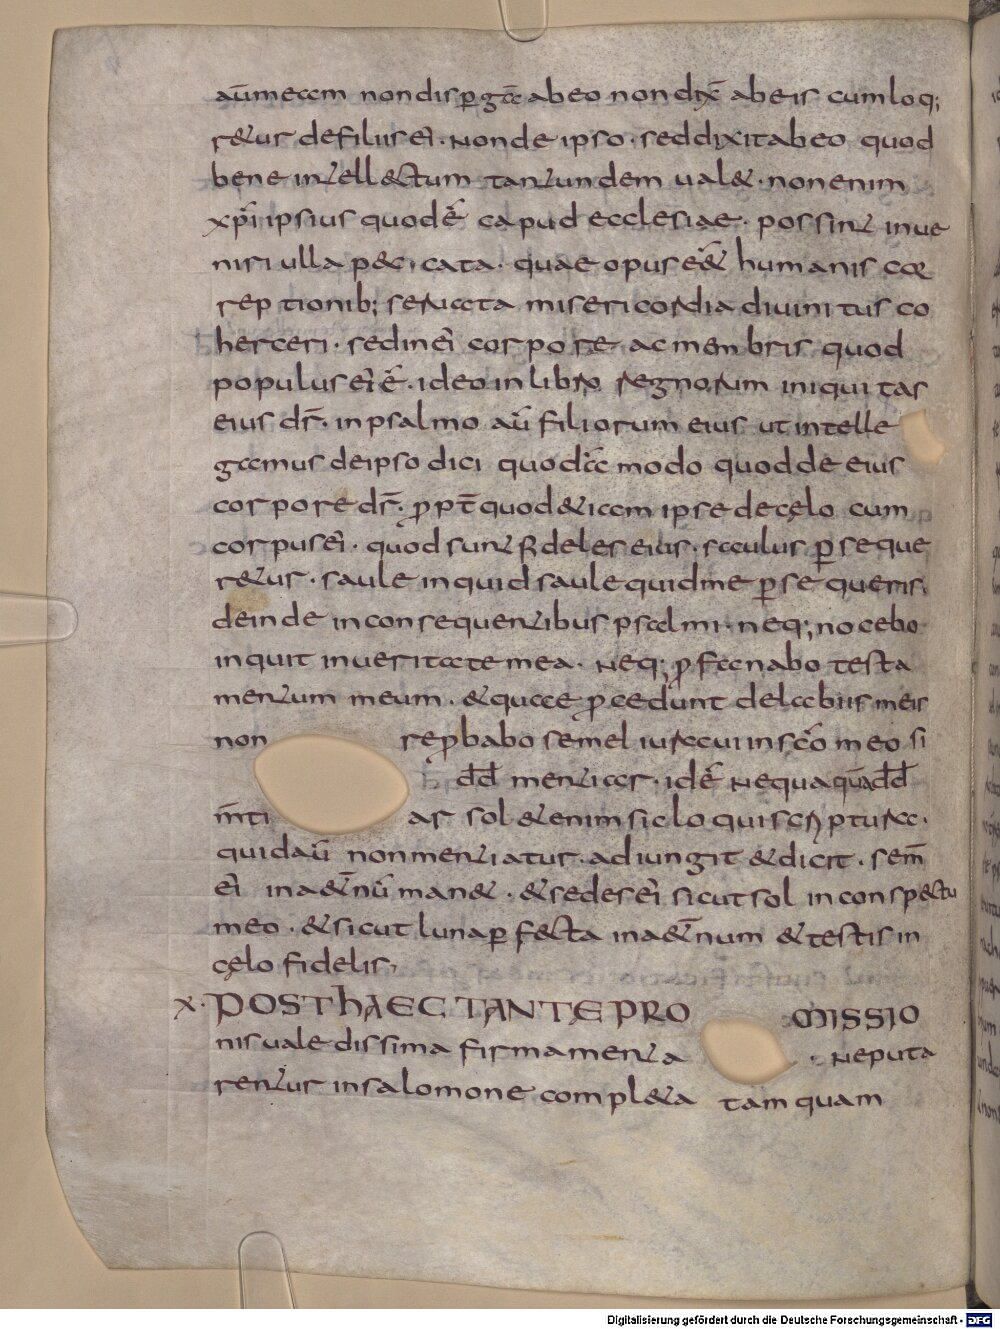 aū meam non disꝑgā abeo non dix̄ ab eis cum loq;
retur de filiis ei. Non de ipso. sed dixit ab eo quod
bene intellectum tantundem ualet. non enim
xp̄i ipsius quod ē caput ecclesiae. possint inue
niri ulla peccata. quae opus eēt humanis cor
reptionib; seruata misericordia diuinitus co
herceri. sed in ei corpore ac membris quod
populus ei ē. ideo in libro regnorum iniquitas
eius dr̄. in psalmo aū filiorum eius ut intelle
gamus de ipso dici quodā modo quod de eius
corpore dr̄. ꝓpt̄ quod etiam ipse de cęlo cum
corpus ei. quod sunt fideles eius. saulus ꝑseque
retur. saule inquid saule quid me ꝑsequeris.
deinde in consequentibus psalmi. neq; nocebo
inquit in ueritate mea. Neq; ꝓfanabo testa
mentum meum. et quae ꝓcedunt de labiis meis
non reꝓbabo semel iuraui in sc̄o meo si
dd mentiar. id ē Nequaquā dd
m̄ti ar solet enim sic loqui scriptura.
quid aū non mentiatur. adiungit et dicit. sem̄
ei in aet̄nū manet. et sedes ei sicut sol in conspectu
meo. et sicut luna ꝑfecta in aet̄num et testis in
cęlo fidelis,
x. POST HAEC TANTE PRO MISSIO
nis ualedissima firmamenta . Ne puta
rentur in salomone completa tamquam
Digitalisierung gefördert durch die Deutsche Forschungsgemeinschaft - DFG